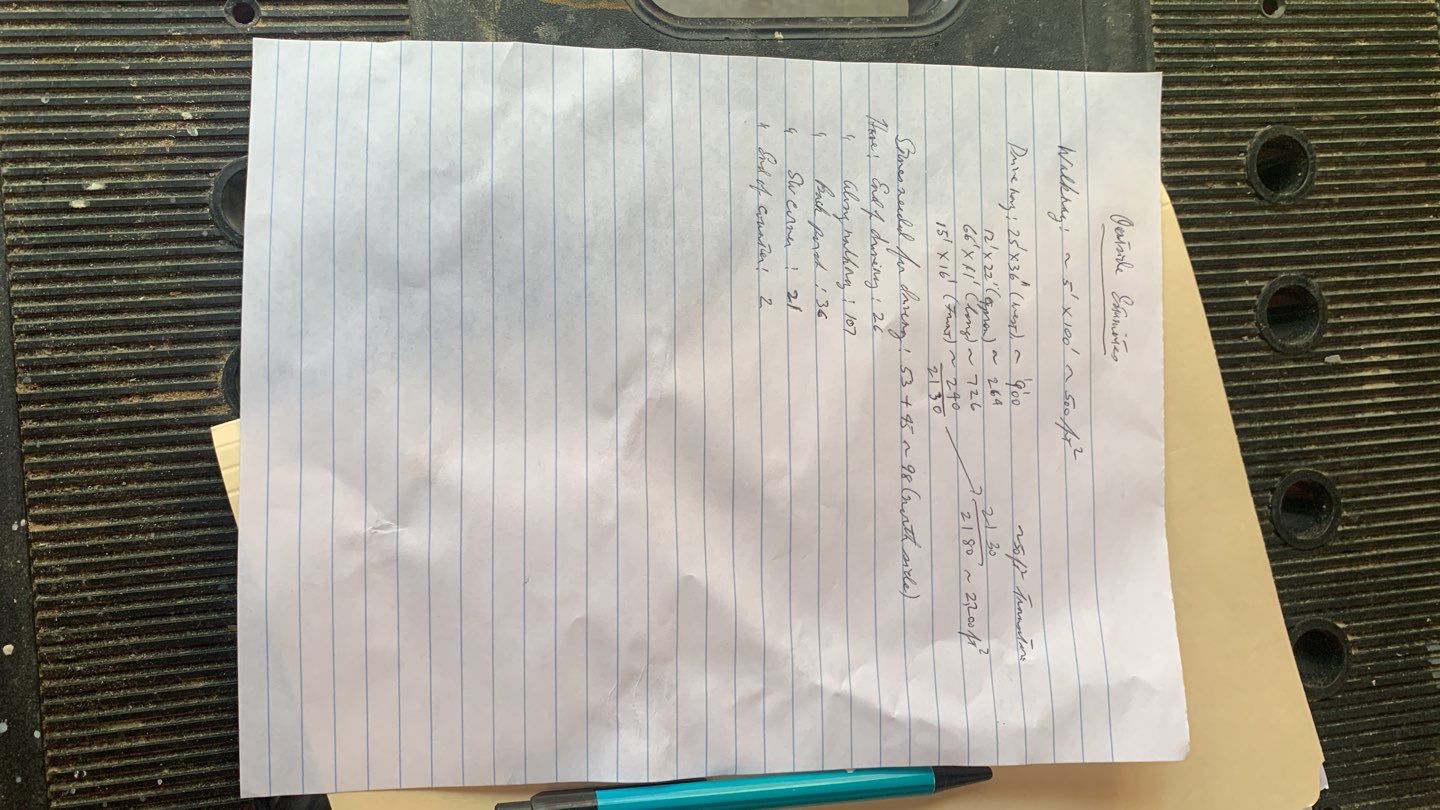 Outside Estimates
Walkway: ~ 5' x 100' ~ 500 ft²
Driveway: 25' x 36' (west) ~ 900
12' x 22' ~ 264
66' x 11' (long) ~ 726
15' x 16' (front) ~ 240
2130
~50 ft² transitions
2130
2180 ~ 2,200 ft²
Stones needed for driveway: 53 + 45 ~ 98 (north side)
Have: End of driveway: 26
" along walkway: 107
" Back pond: 36
" SW corner: 21
" End of counter: 2